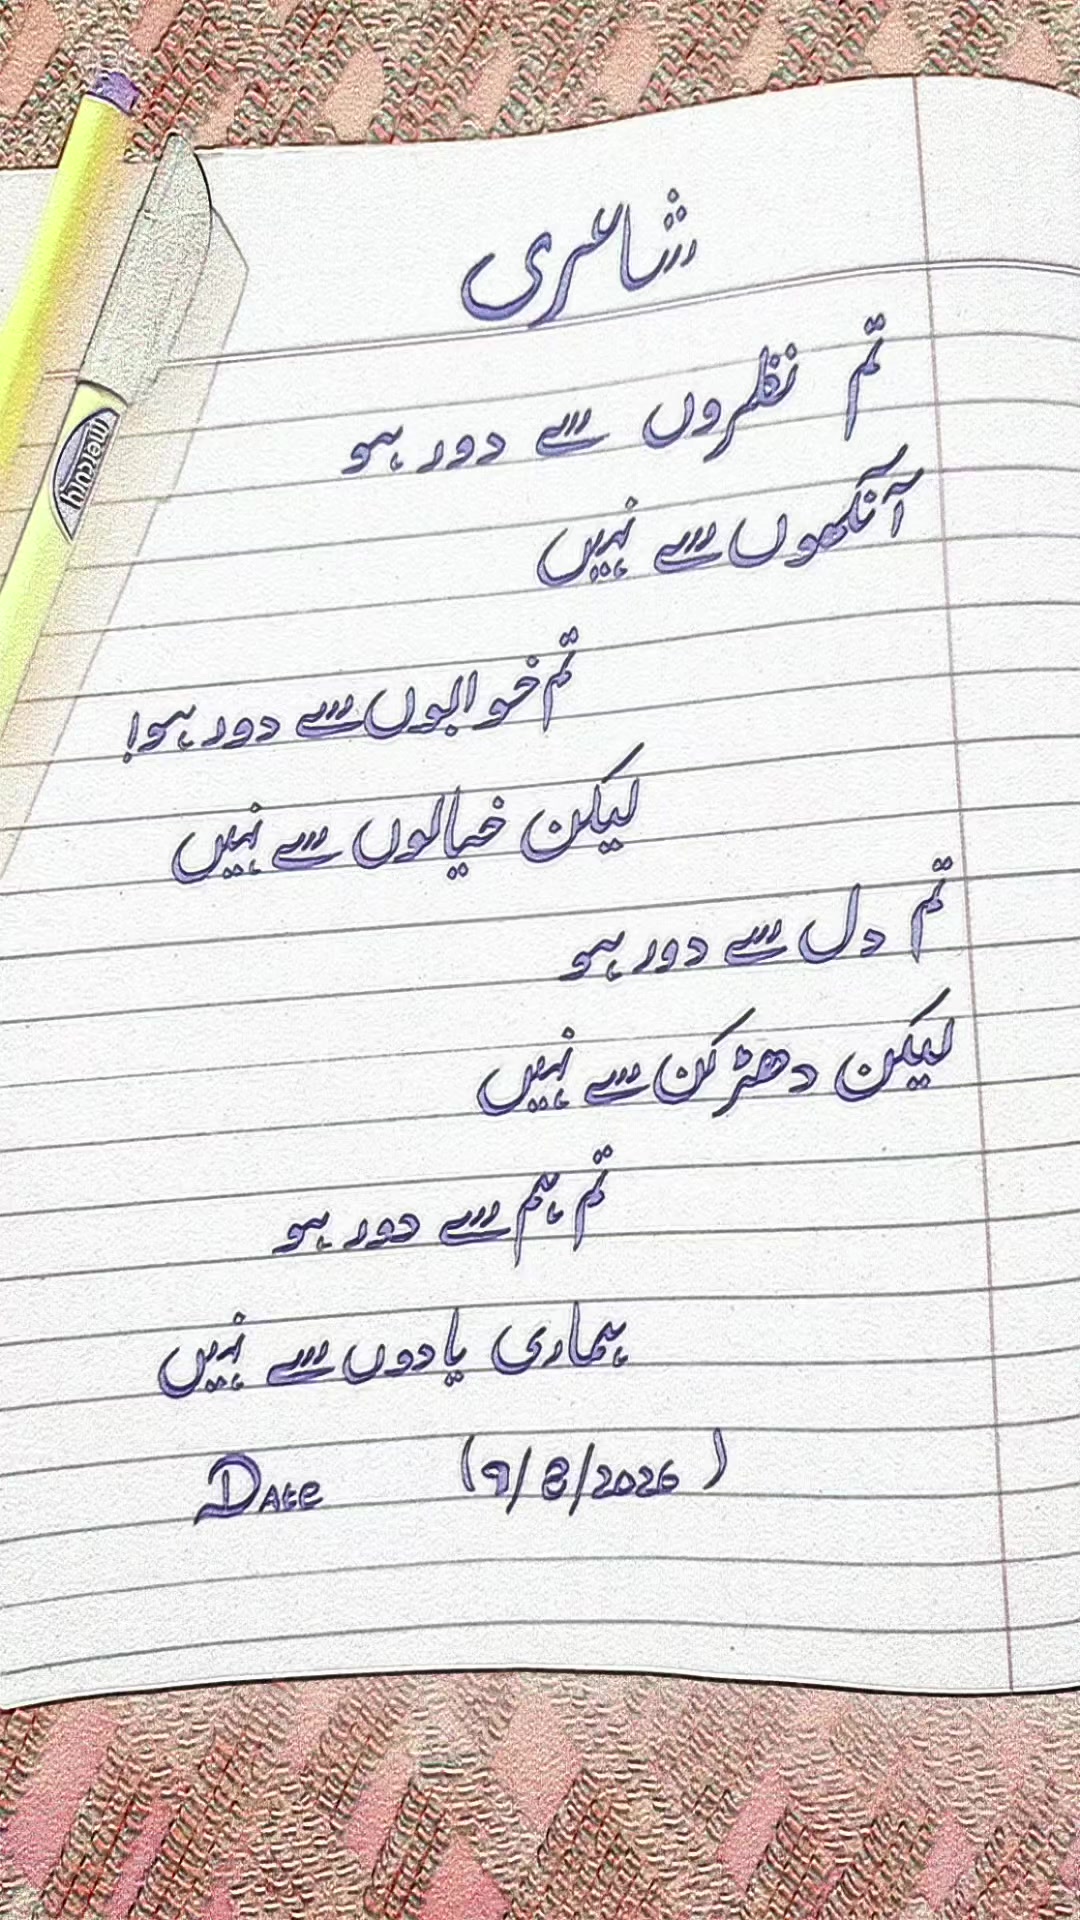 شاعری
تم نظروں سے دور ہو
آنکھوں سے نہیں
تم خوابوں سے دور ہو!
لیکن خیالوں سے نہیں
تم دل سے دور ہو
لیکن دھڑکن سے نہیں
تم ہم سے دور ہو
ہماری یادوں سے نہیں
Date (9/8/2026)
mercury